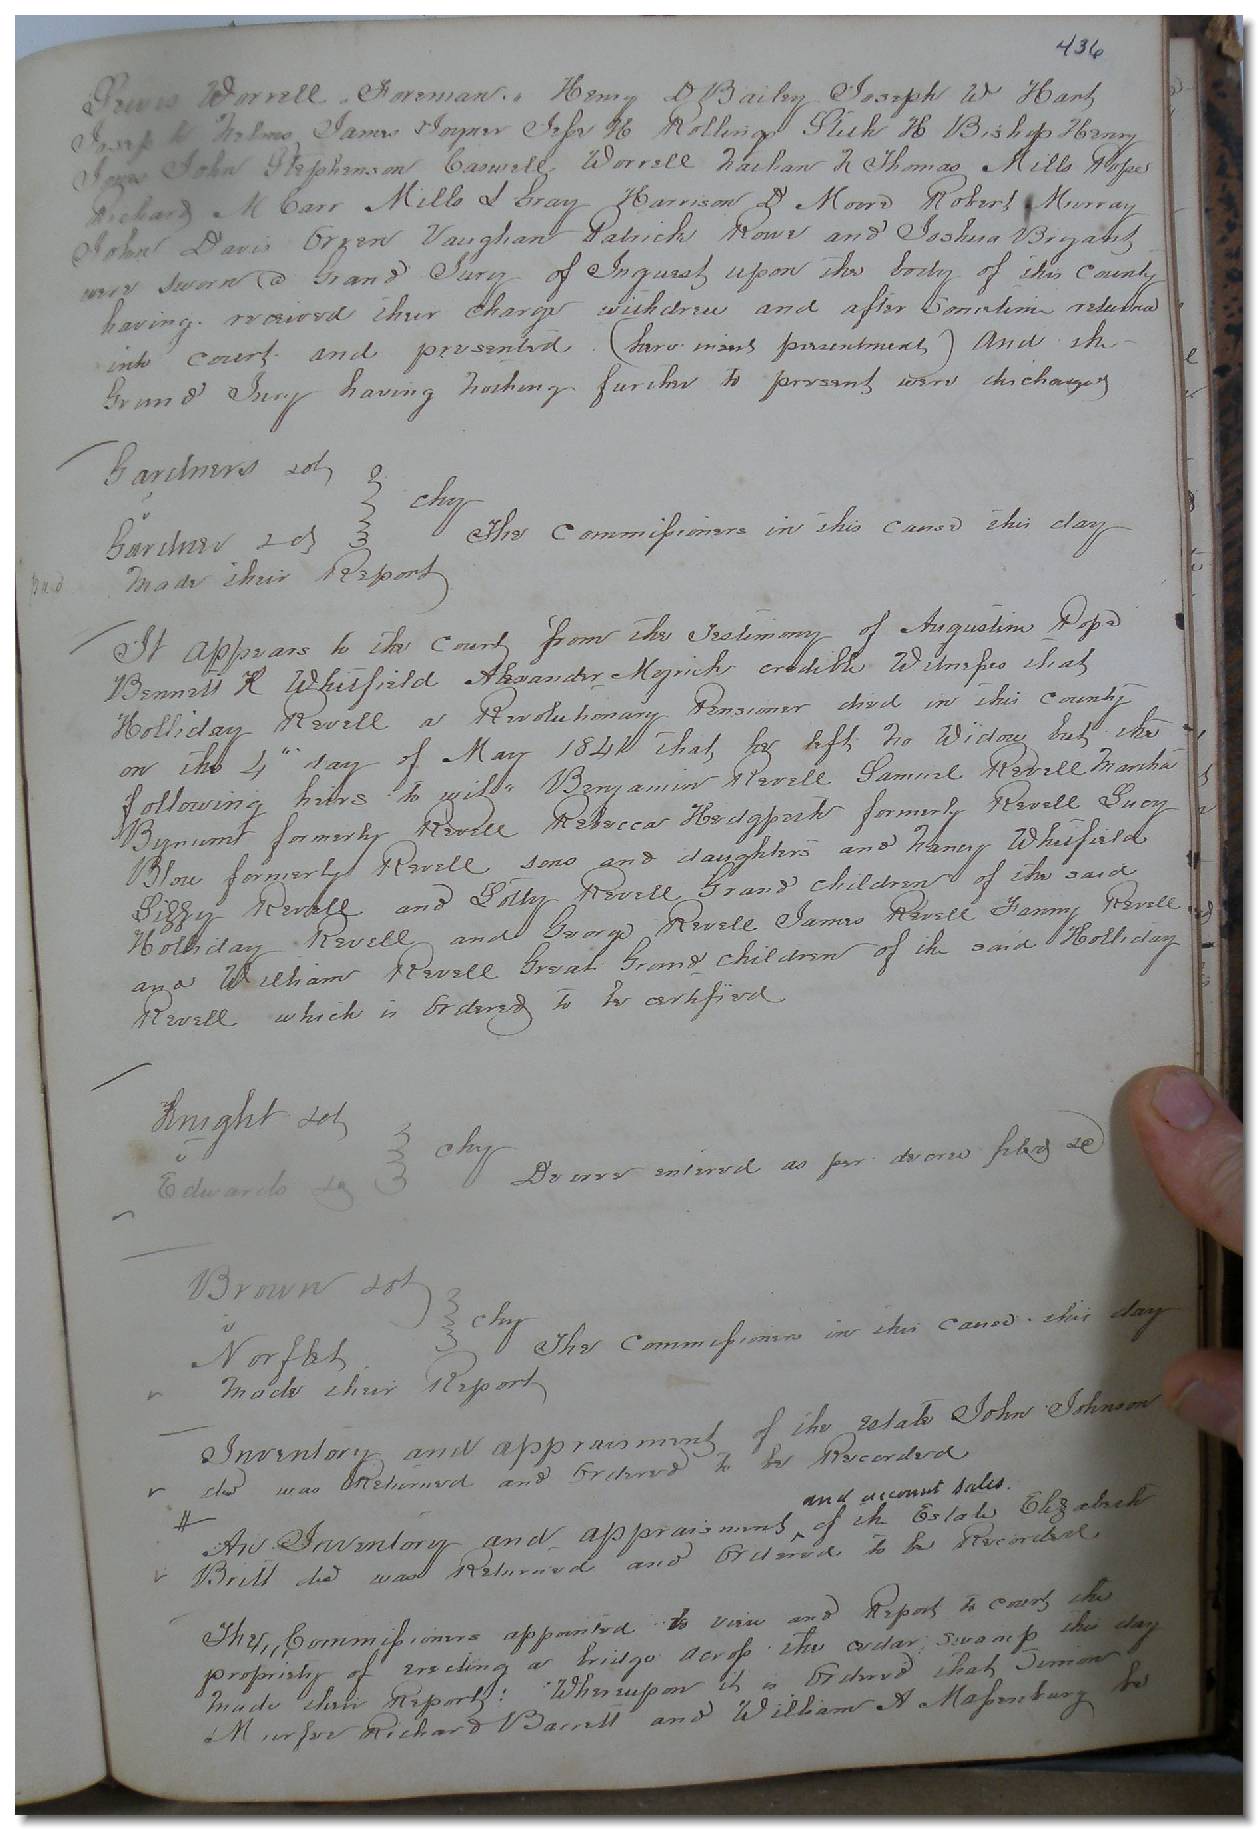 436
Lewis Worrell, Foreman, Henry D Bailey Joseph W Hart
James Joyner Jesse H Rolling H Bishop Henry
Jones John Stephenson Caswell Worrell Nathan N Thomas Mills Pope
Richard M Carr Mills L Gray Harrison D Moore Robert Murray
John Davis Green Vaughan Patrick Rowe and Joshua Bryant
were sworn a Grand Jury of Inquest upon the body of this County
having received their charge withdrew and after sometime returned
into court and presented (here insert presentments) And the
Grand Jury having nothing further to present were discharged
Gardners
v chy
Gardner The Commissioners in this cause this day
made their Report
It appears to the Court from the testimony of Augustine Pope
Bennett R Whitfield Alexander Myrick credible Witnesses that
Holliday Revell a Revolutionary Pensioner died in this county
on the 4" day of May 1841 that he left no Widow but the
following heirs to wit " Benjamin Revell Samuel Revell Martha
Bynum formerly Revell Rebecca Hedgpeth formerly Revell Lucy
Blow formerly Revell sons and daughters and Nancy Whitfield
Lizzy Revell and Lotty Revell Grand children of the said
Holliday Revell and George Revell James Revell Fanny Revell
and William Revell Great Grand children of the said Holliday
Revell which is Ordered to be certified
Knight
v chy
Edwards Decree entered as per decree filed &c
Brown
v chy
Norfleet The Commissioners in this cause this day
made their Report
Inventory and appraisment of the estate John Johnson
decd was Returned and Ordered to be Recorded
and account sales.
An Inventory and appraisment ^ of the Estate Elizabeth
Britt decd was Returned and Ordered to be Recorded
The Commissioners appointed to view and Report to court the
propriety of erecting a bridge across the cedar swamp this day
made their Report: Whereupon it is Ordered that Simon
Murfee Richard Barrett and William A Massenburg be